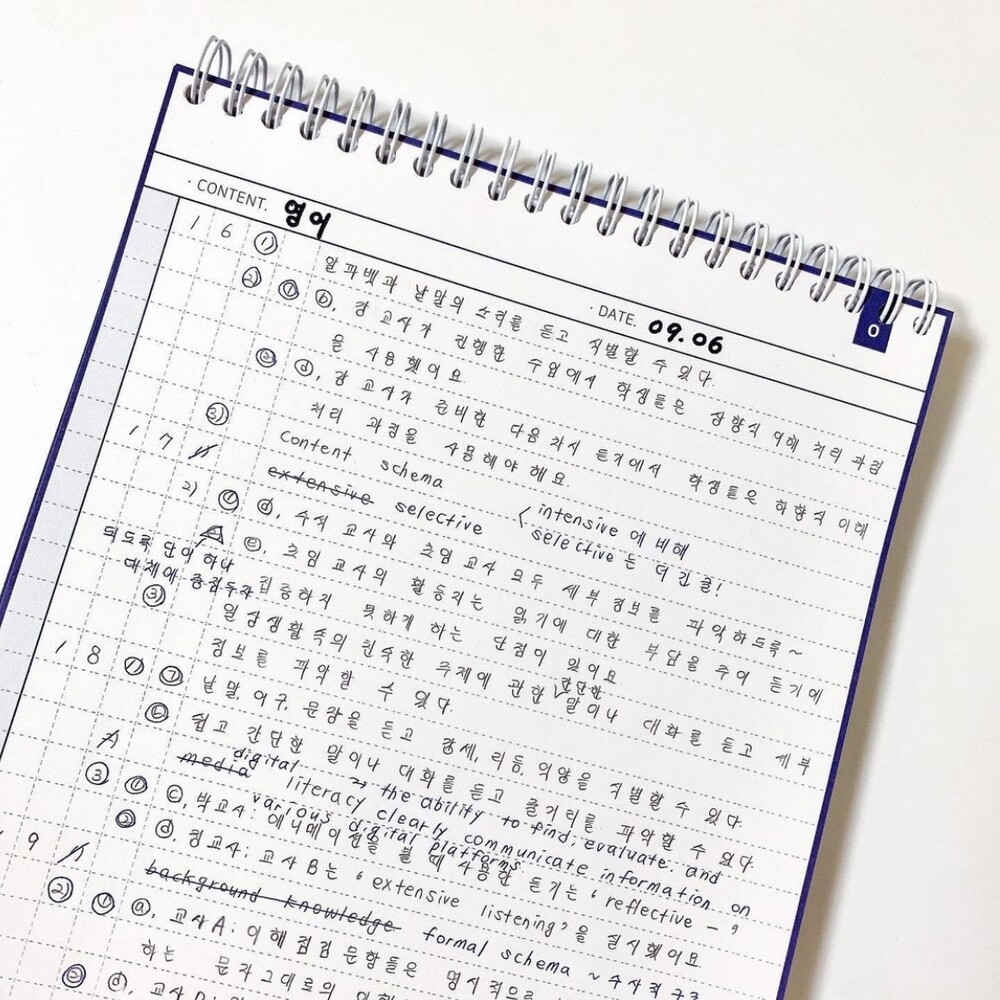 CONTENT. 영어
DATE. 09.06
0
16 ① 알파벳과 낱말의 소리를 듣고 식별할 수 있다.
② ① ⓑ, 강 교사가 진행한 수업에서 학생들은 상향식 이해 처리 과정
을 사용했어요
② ⓓ, 강 교사가 준비한 다음 차시 듣기에서 학생들은 하향식 이해
처리 과정을 사용해야 해요
③ Content schema
17 1) extensive selective < intensive에 비해
selective는 더 긴 글!
2) ① ⓓ, 수석 교사와 초임 교사 모두 세부 정보를 파악하도록~
② ⓔ, 초임 교사의 활동지는 읽기에 대한 부담을 주어 듣기에
되도록 단어 하나
대체에 중점두자
집중하지 못하게 하는 단점이 있어요
③ 일상생활 속의 친숙한 주제에 관한 간단한 말이나 대화를 듣고 세부
정보를 파악할 수 있다.
18 ① ㉠ 낱말, 어구, 문장을 듣고 강세, 리듬, 억양을 식별할 수 있다.
㉡ 쉽고 간단한 말이나 대화를 듣고 줄거리를 파악할 수 있다.
media digital literacy → the ability to find, evaluate, and
clearly communicate information on
various digital platforms
③ ① ⓒ, 박교사: 애니메이션을 볼 때 사용한 듣기는 'reflective -'
② ⓓ, 정교사: 교사 B는 'extensive listening'을 실시했어요
9 1) background knowledge formal schema ~ 수사적 구조
② ① ⓐ, 교사 A: 이해 점검 문항들은 명시적으로
하는 문자 그대로의
② ⓓ, 교사